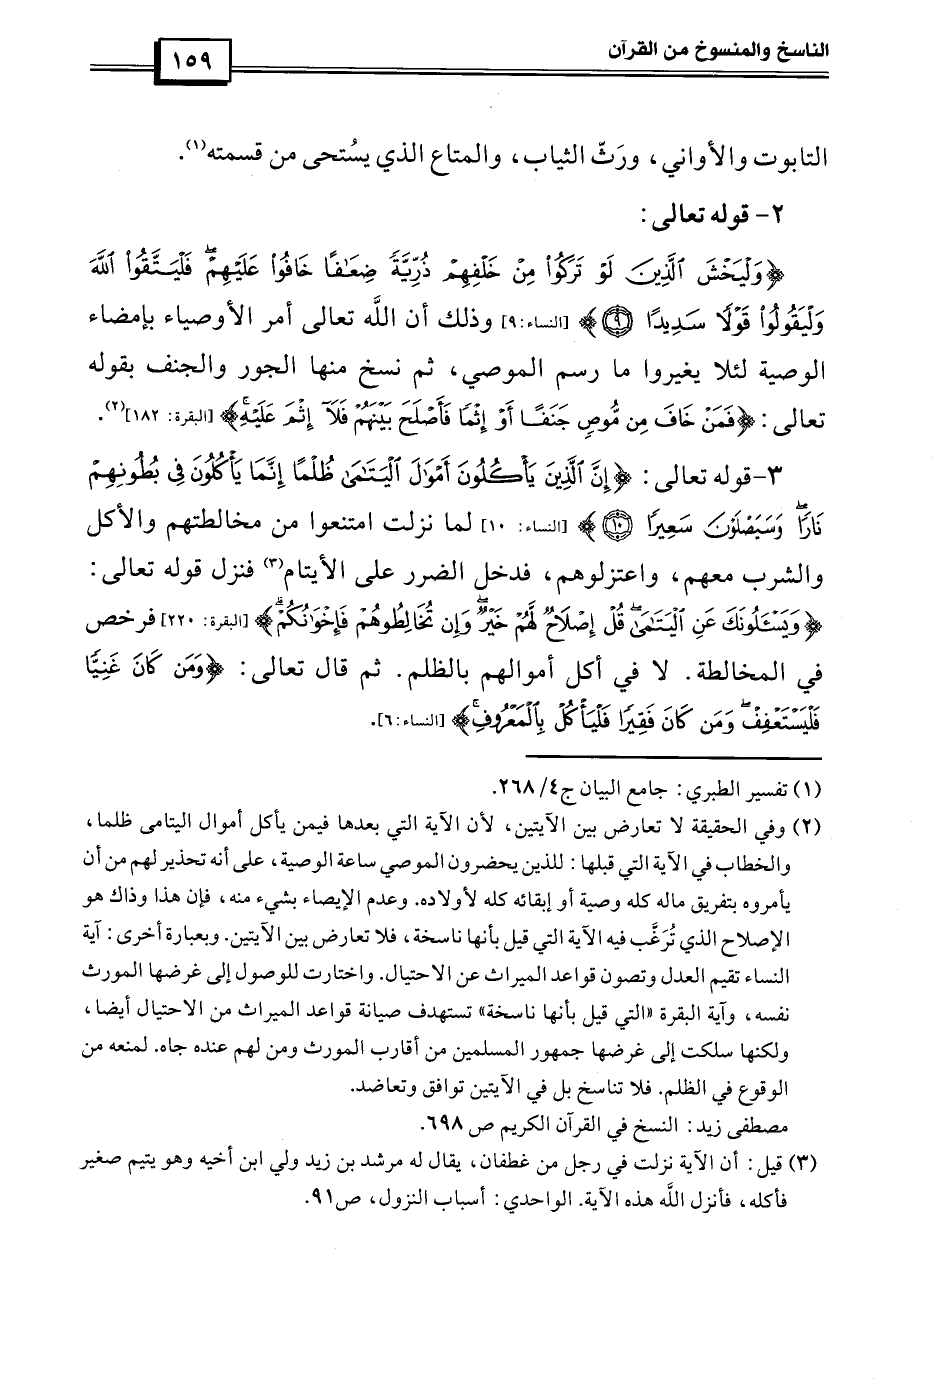 الناسخ والمنسوخ من القرآن
١٥٩
التابوت والأواني، ورَثّ الثياب، والمتاع الذي يسُتحى من قسمته(١).
٢- قوله تعالى:
﴿وَلْيَخْشَ ٱلَّذِينَ لَوْ تَرَكُوا۟ مِنْ خَلْفِهِمْ ذُرِّيَّةً ضِعَـٰفًا خَافُوا۟ عَلَيْهِمْ ۖ فَلْيَتَّقُوا۟ ٱللَّهَ
وَلْيَقُولُوا۟ قَوْلًا سَدِيدًا ۝٩﴾ [النساء: ٩] وذلك أن اللَّه تعالى أمر الأوصياء بإمضاء
الوصية لئلا يغيروا ما رسم الموصي، ثم نسخ منها الجور والجنف بقوله
تعالى: ﴿فَمَنْ خَافَ مِن مُّوصٍ جَنَفًا أَوْ إِثْمًا فَأَصْلَحَ بَيْنَهُمْ فَلَآ إِثْمَ عَلَيْهِ ۚ﴾ [البقرة: ١٨٢](٢).
٣-قوله تعالى: ﴿إِنَّ ٱلَّذِينَ يَأْكُلُونَ أَمْوَٰلَ ٱلْيَتَـٰمَىٰ ظُلْمًا إِنَّمَا يَأْكُلُونَ فِى بُطُونِهِمْ
نَارًا ۖ وَسَيَصْلَوْنَ سَعِيرًا ۝١٠﴾ [النساء: ١٠] لما نزلت امتنعوا من مخالطتهم والأكل
والشرب معهم، واعتزلوهم، فدخل الضرر على الأيتام(٣) فنزل قوله تعالى:
﴿وَيَسْـَٔلُونَكَ عَنِ ٱلْيَتَـٰمَىٰ ۖ قُلْ إِصْلَاحٌ لَّهُمْ خَيْرٌ ۖ وَإِن تُخَالِطُوهُمْ فَإِخْوَٰنُكُمْ ۚ﴾ [البقرة: ٢٢٠] فرخص
في المخالطة. لا في أكل أموالهم بالظلم. ثم قال تعالى: ﴿وَمَن كَانَ غَنِيًّا
فَلْيَسْتَعْفِفْ ۖ وَمَن كَانَ فَقِيرًا فَلْيَأْكُلْ بِٱلْمَعْرُوفِ ۚ﴾ [النساء: ٦].
(١) تفسير الطبري: جامع البيان ج٤/ ٢٦٨.
(٢) وفي الحقيقة لا تعارض بين الآيتين، لأن الآية التي بعدها فيمن يأكل أموال اليتامى ظلما،
والخطاب في الآية التي قبلها: للذين يحضرون الموصي ساعة الوصية، على أنه تحذير لهم من أن
يأمروه بتفريق ماله كله وصية أو إبقائه كله لأولاده. وعدم الإيصاء بشيء منه، فإن هذا وذاك هو
الإصلاح الذي تُرَغَّب فيه الآية التي قيل بأنها ناسخة، فلا تعارض بين الآيتين. وبعبارة أخرى: آية
النساء تقيم العدل وتصون قواعد الميراث عن الاحتيال. واختارت للوصول إلى غرضها المورث
نفسه، وآية البقرة «التي قيل بأنها ناسخة» تستهدف صيانة قواعد الميراث من الاحتيال أيضا،
ولكنها سلكت إلى غرضها جمهور المسلمين من أقارب المورث ومن لهم عنده جاه. لمنعه من
الوقوع في الظلم. فلا تناسخ بل في الآيتين توافق وتعاضد.
مصطفى زيد: النسخ في القرآن الكريم ص ٦٩٨.
(٣) قيل: أن الآية نزلت في رجل من غطفان، يقال له مرشد بن زيد ولي ابن أخيه وهو يتيم صغير
فأكله، فأنزل اللَّه هذه الآية. الواحدي: أسباب النزول، ص٩١.